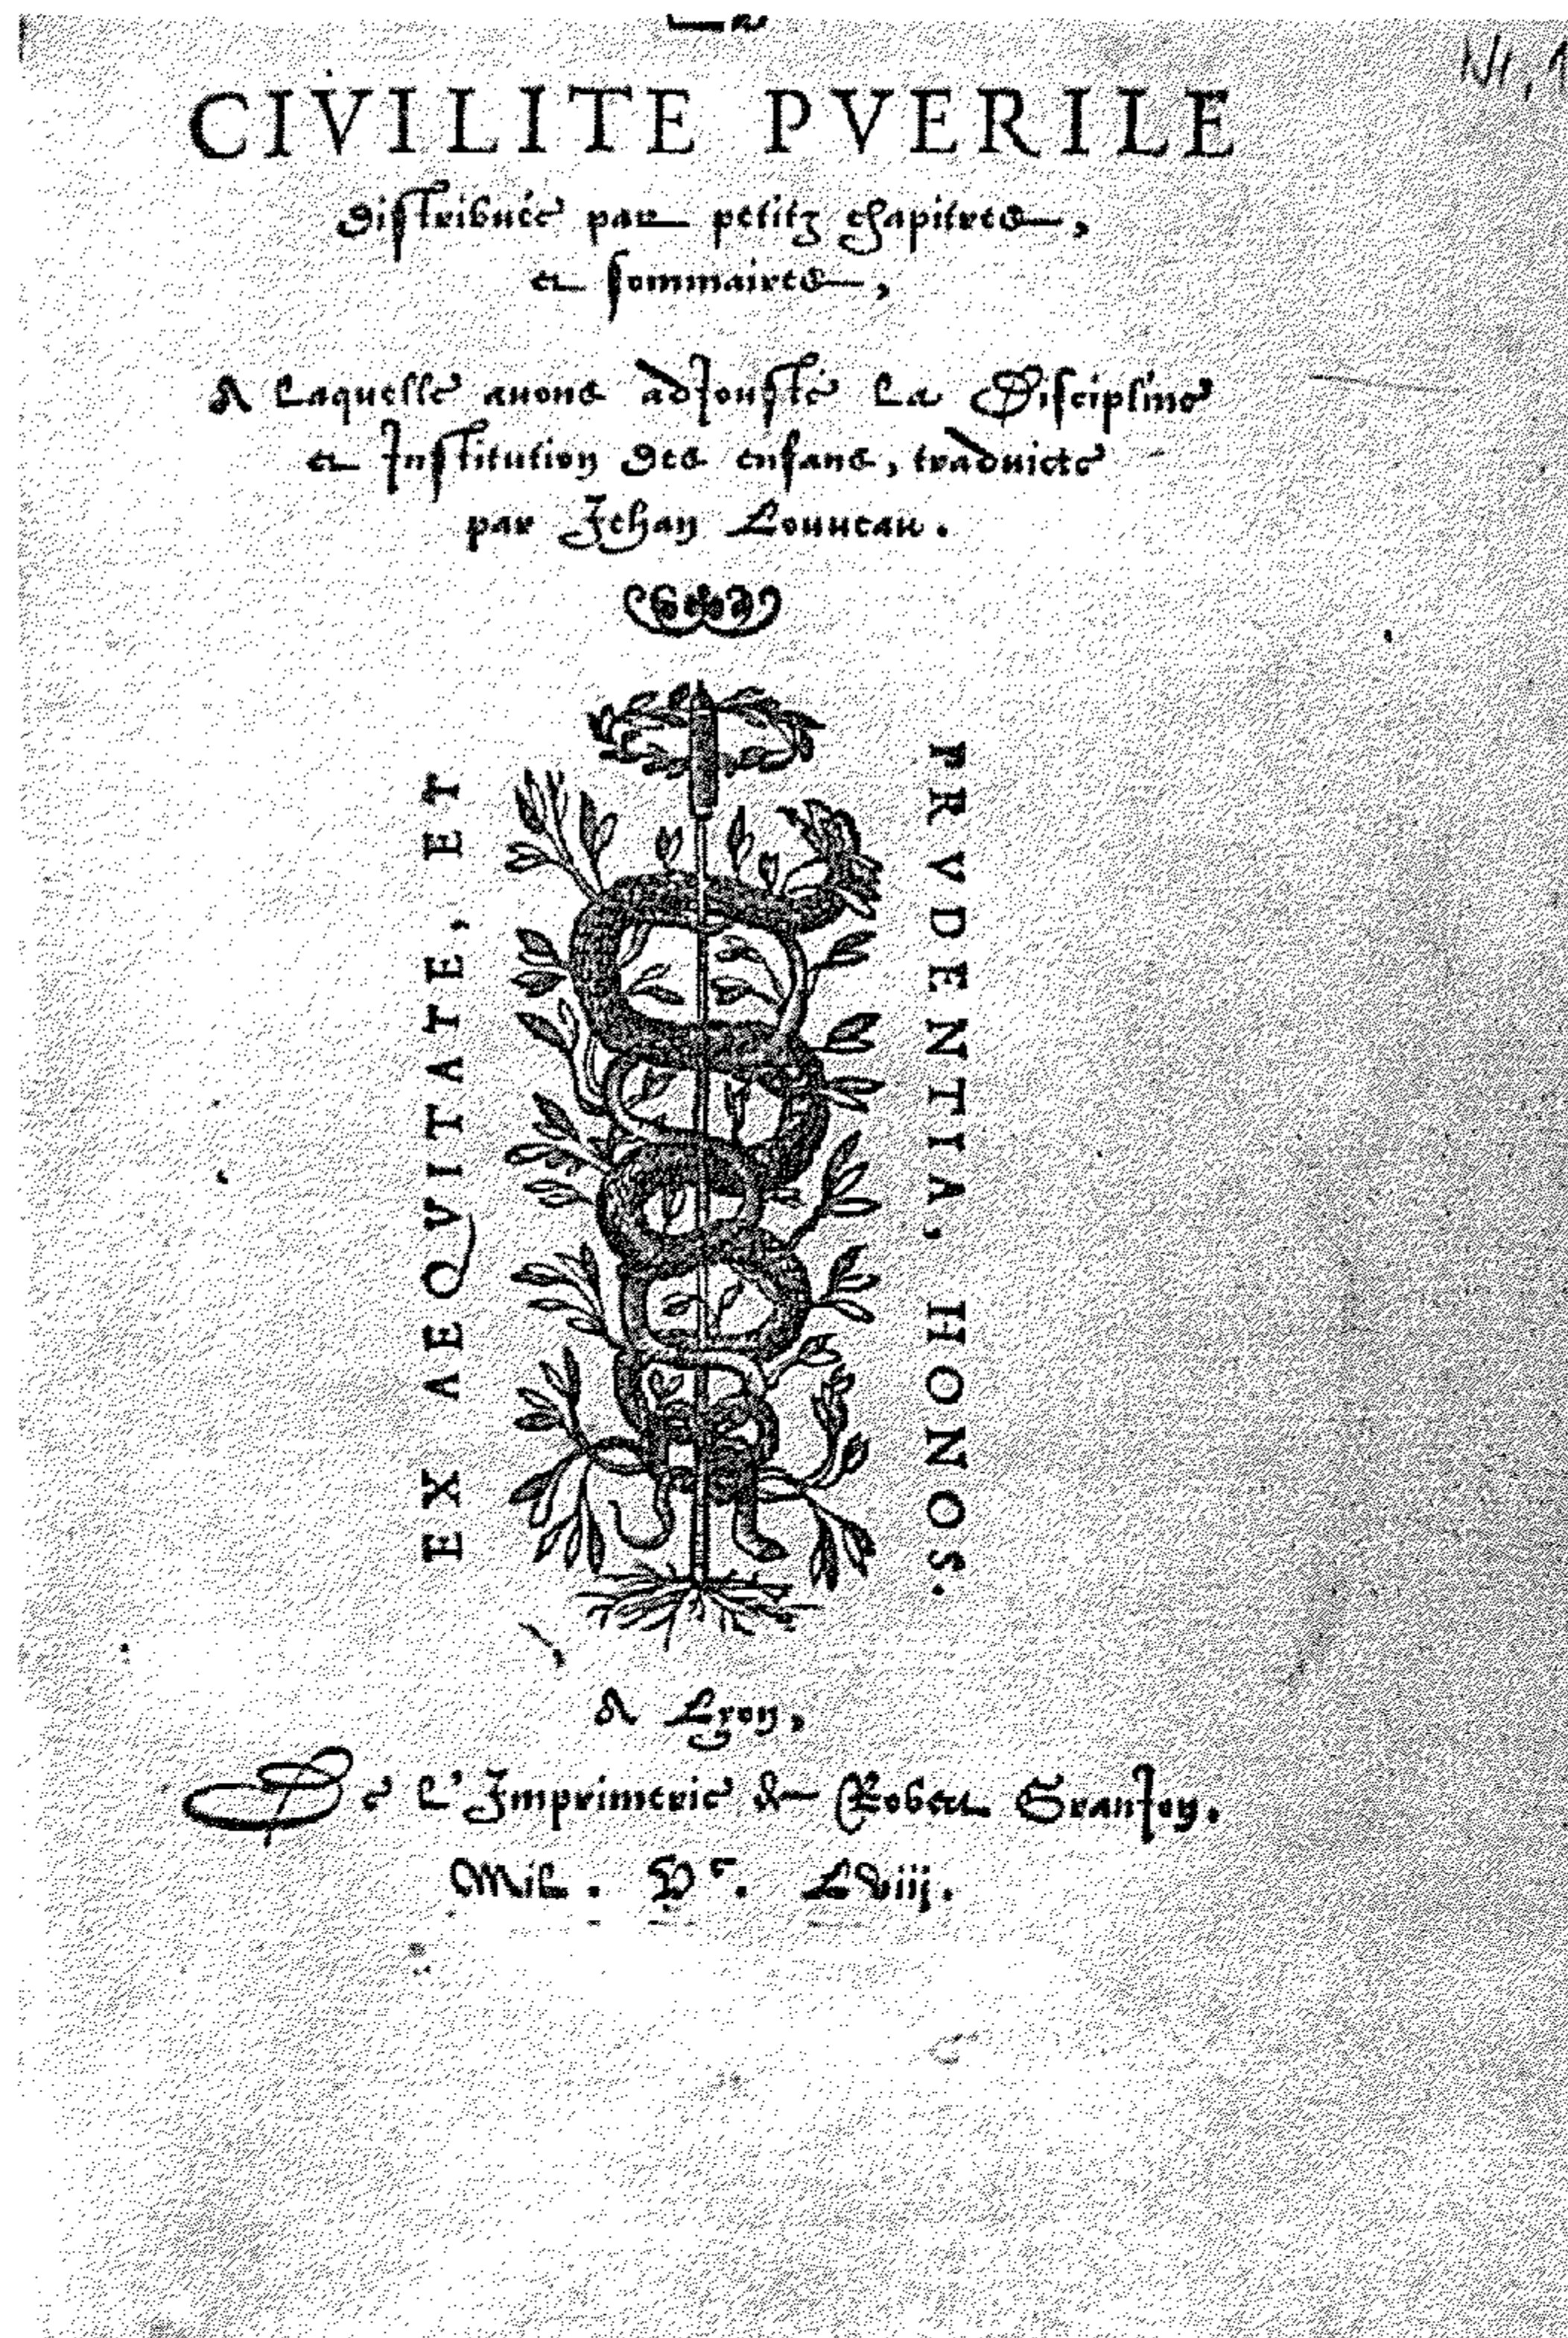 La
CIVILITE PVERILE
distribuée par petitz chapitres,
et sommaires,
A laquelle auons adjousté la Discipline
et Institution des enfans, traduicte
par Jehan Louueau.
EX AEQVITATE, ET
PRVDENTIA, HONOS.
A Lyon,
De l'Imprimerie de Robert Granjon.
Mil. Vc. LViij.